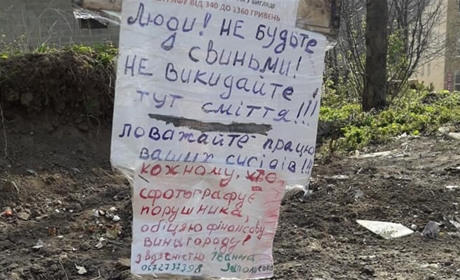 ВІД 340 ДО 1360 ГРИВЕНЬ
Люди! Не будьте
свиньми!
Не викидайте
тут сміття!!!
поважайте працю
ваших сусідів!!!
кожному, хто
сфотографує
порушника,
обіцяю фінансову
винагороду!
З вдячністю Іванна